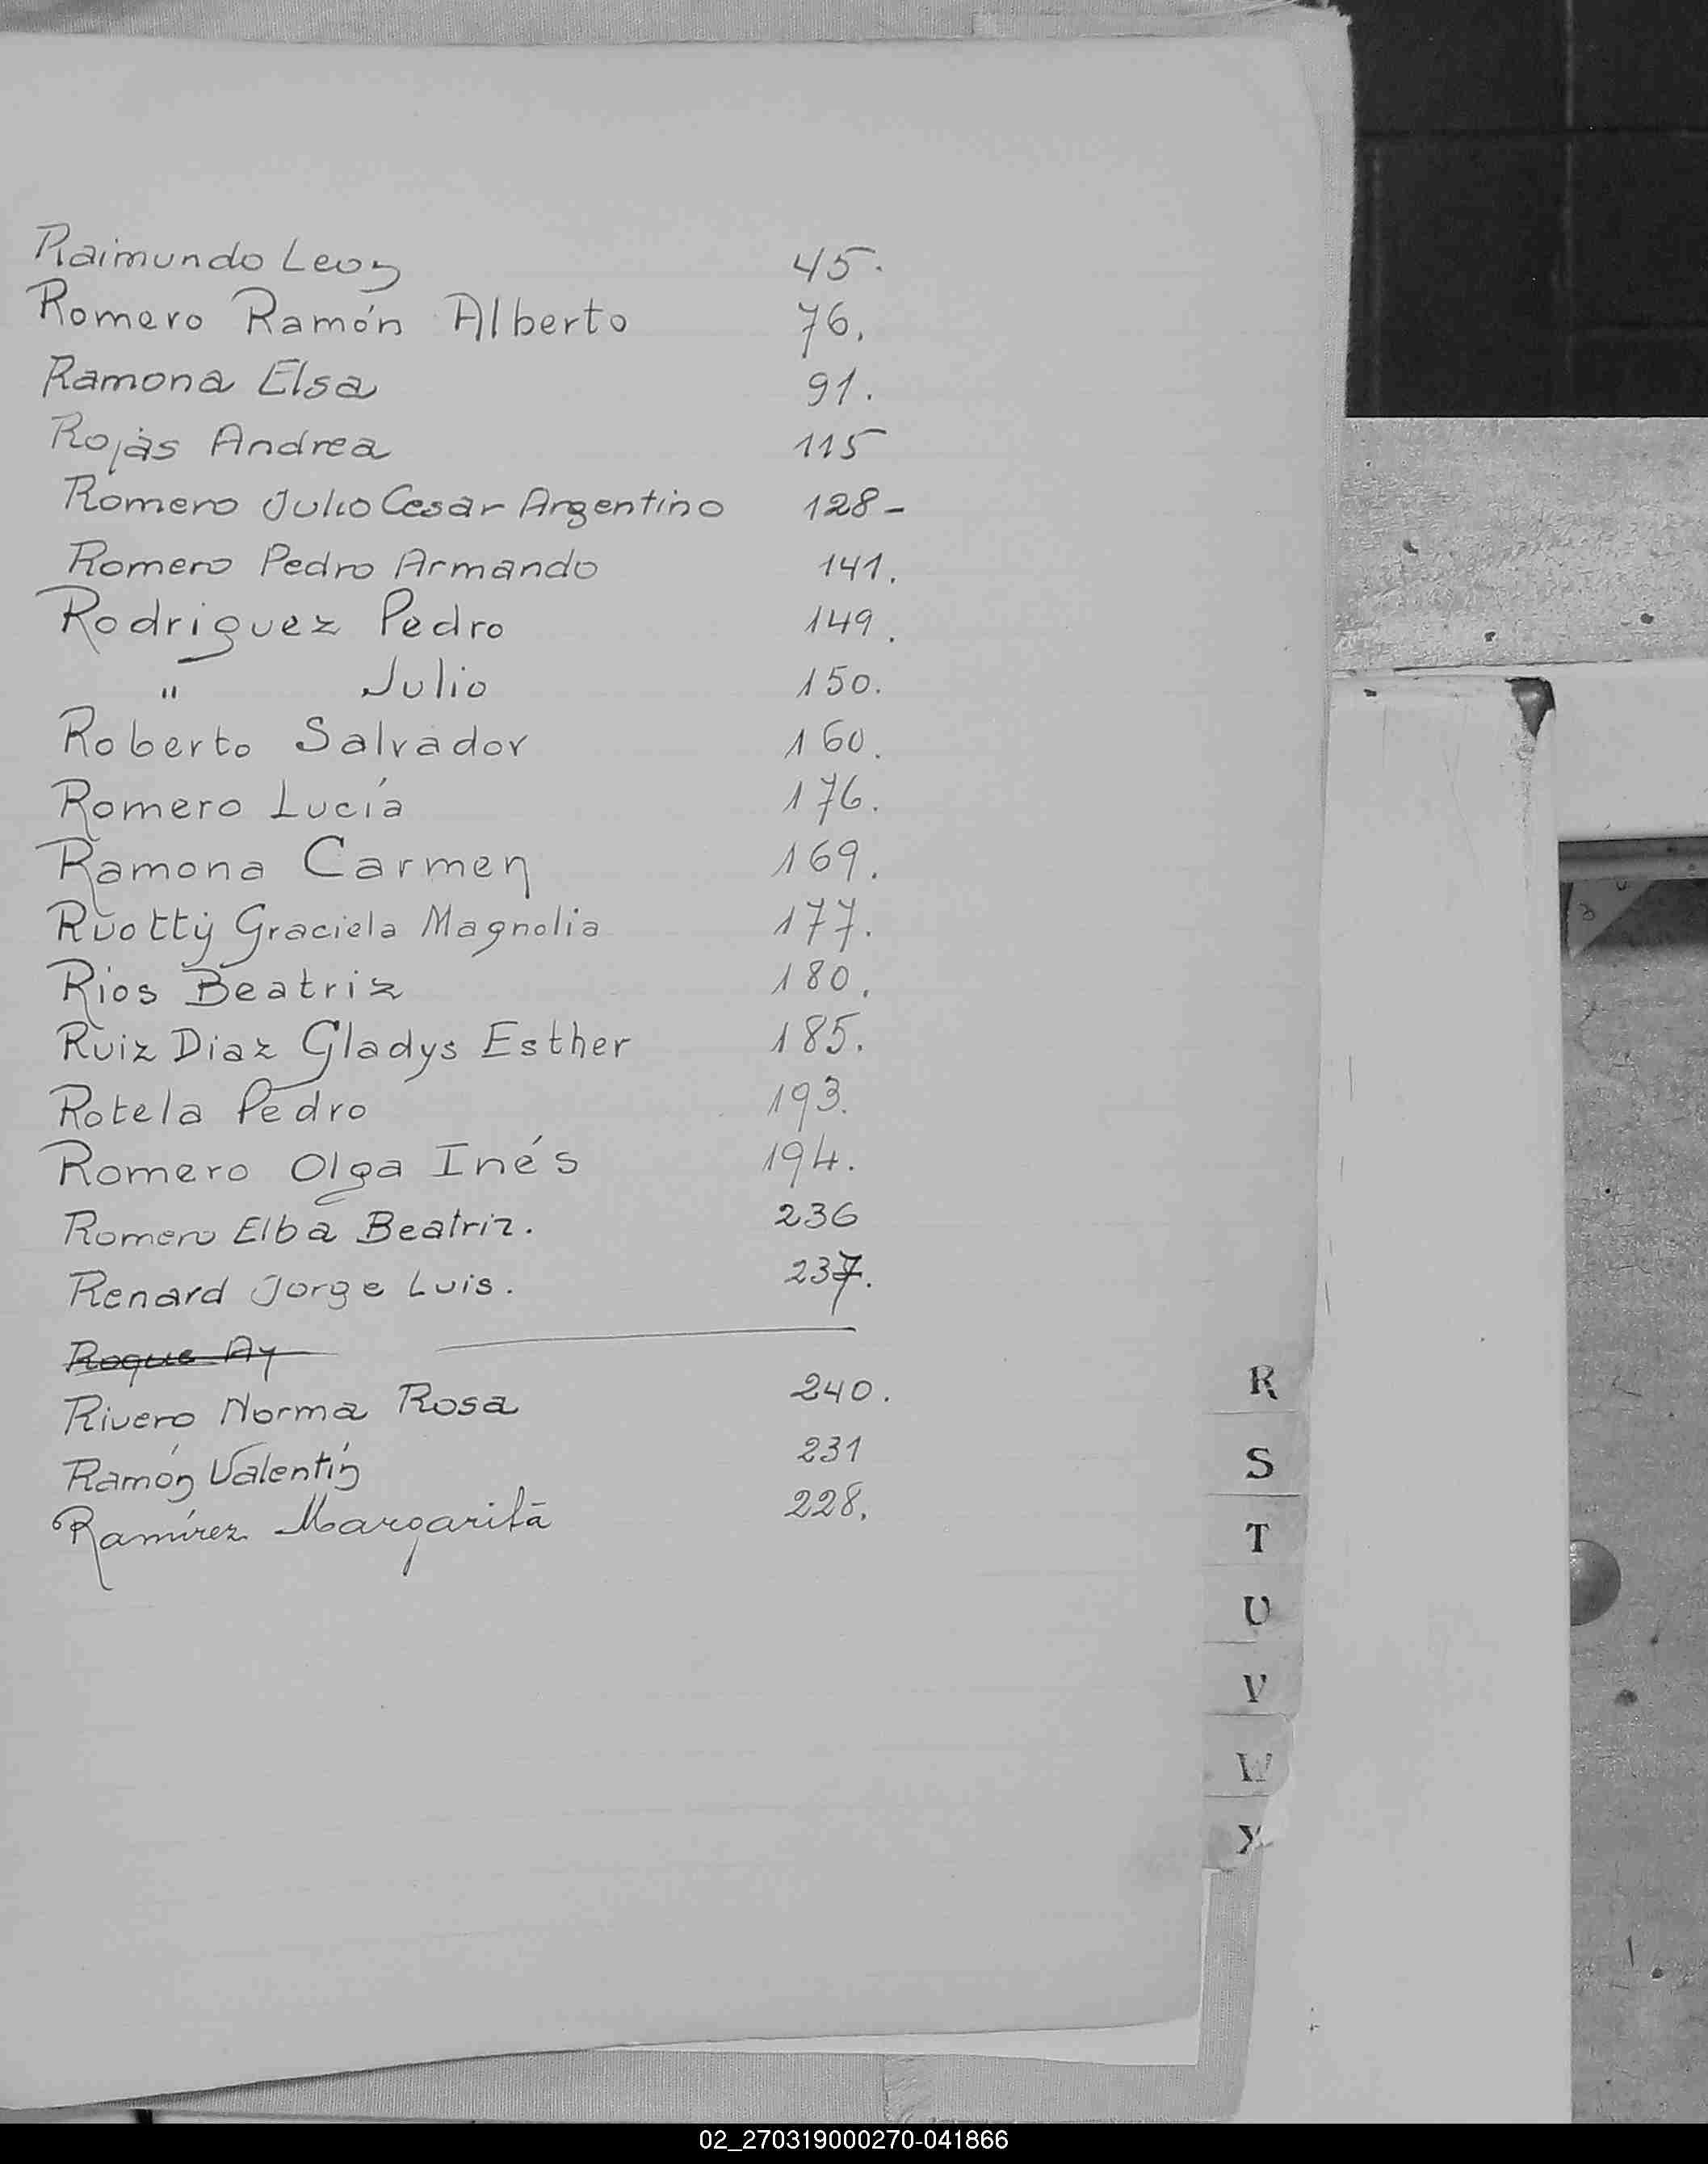 Raimundo Leon 45.
Romero Ramón Alberto 76.
Ramona Elsa 91.
Rojas Andrea 115
Romero Julio Cesar Argentino 128-
Romero Pedro Armando 141.
Rodriguez Pedro 149.
" Julio 150.
Roberto Salvador 160.
Romero Lucía 176.
Ramona Carmen 169.
Ruotty Graciela Magnolia 177.
Rios Beatriz 180.
Ruiz Diaz Gladys Esther 185.
Rotela Pedro 193.
Romero Olga Inés 194.
Romero Elba Beatriz. 236
Renard Jorge Luis. 237.
Roque Ay
Rivero Norma Rosa 240.
Ramón Valentín 231
Ramírez Margarita 228.
R
S
T
U
V
W
X
02_270319000270-041866